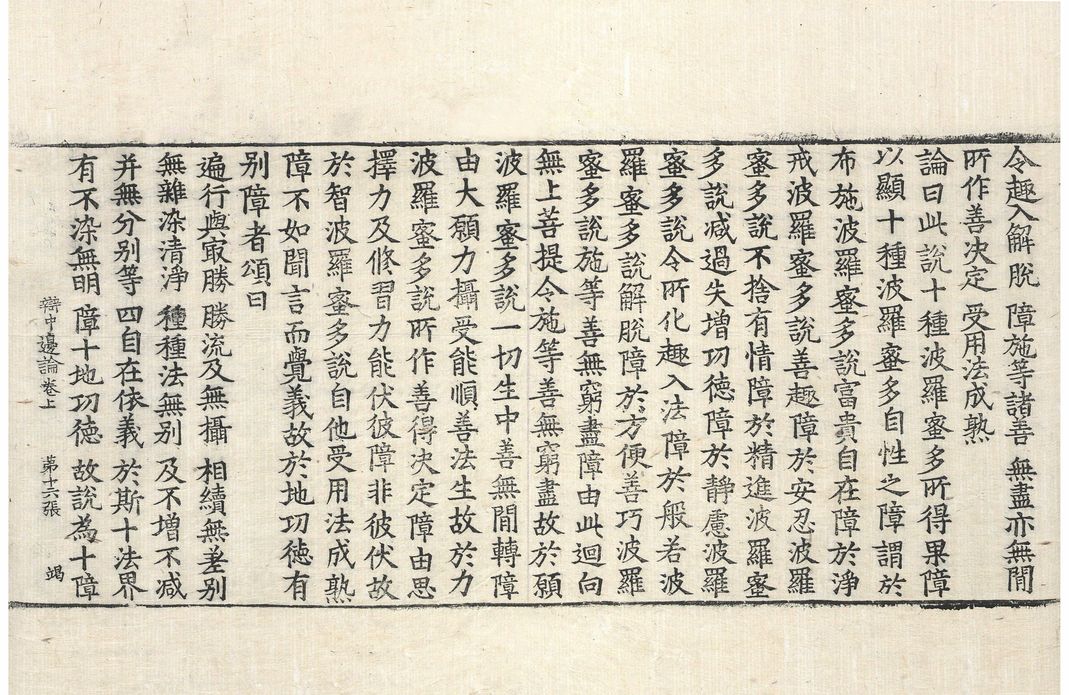 令趣入解脫 障施等諸善 無盡亦無間
所作善决定 受用法成熟
論曰此說十種波羅蜜多所得果障
以顯十種波羅蜜多自性之障謂於
布施波羅蜜多說富貴自在障於淨
戒波羅蜜多說善趣障於安忍波羅
蜜多說不捨有情障於精進波羅蜜
多說減過失增功德障於靜慮波羅
蜜多說令所化趣入法障於般若波
羅蜜多說解脫障於方便善巧波羅
蜜多說施等善無窮盡障由此迴向
無上菩提令施等善無窮盡故於願
波羅蜜多說一切生中善無間轉障
由大願力攝受能順善法生故於力
波羅蜜多說所作善得决定障由思
擇力及修習力能伏彼障非彼伏故
於智波羅蜜多說自他受用法成熟
障不如聞言而覺義故於地功德有
別障者頌曰
遍行與㝡勝 勝流及無攝 相續無差别
無雜染清淨 種種法無别 及不增不减
并無分别等 四自在依義 於斯十法界
有不染無明 障十地功德 故說為十障
辯中邊論卷上 第十六張 竭